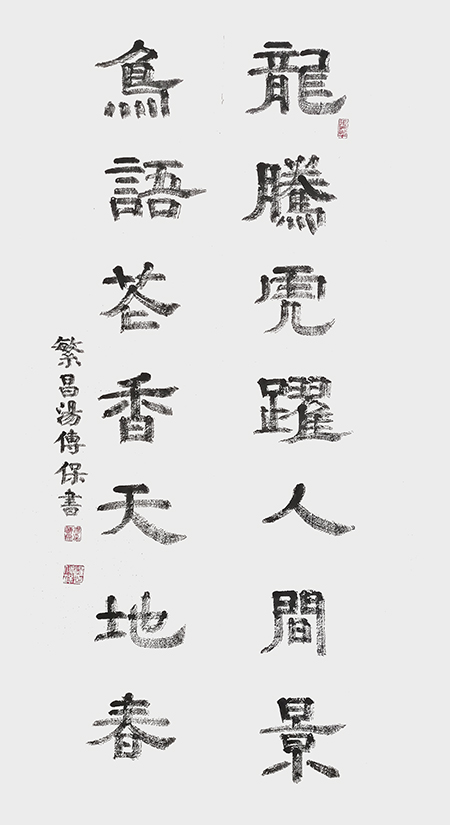 龍騰虎躍人間景
鳥語花香天地春
繁昌湯傳保書